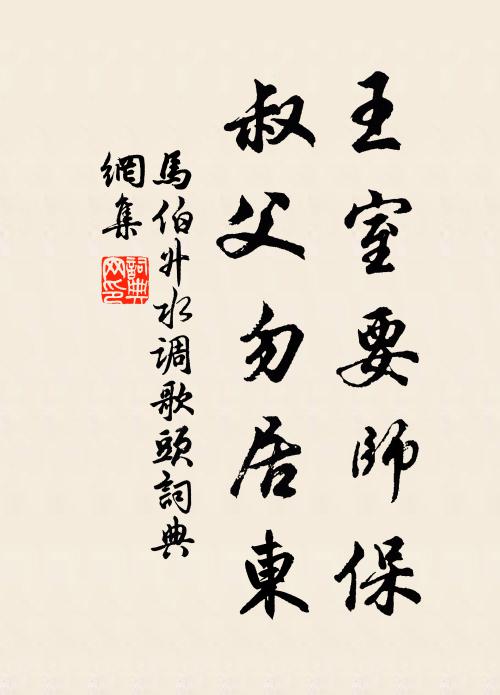 王室要師保
叔父勿居東
馬伯升水调歌頭詞典
網集
詞典網印